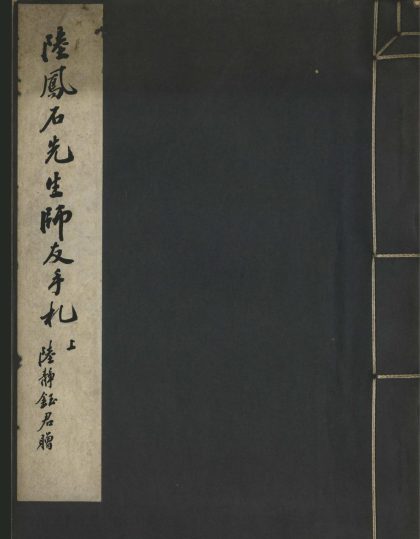 陸鳳石先生師友手札上
陸靜鈺君贈